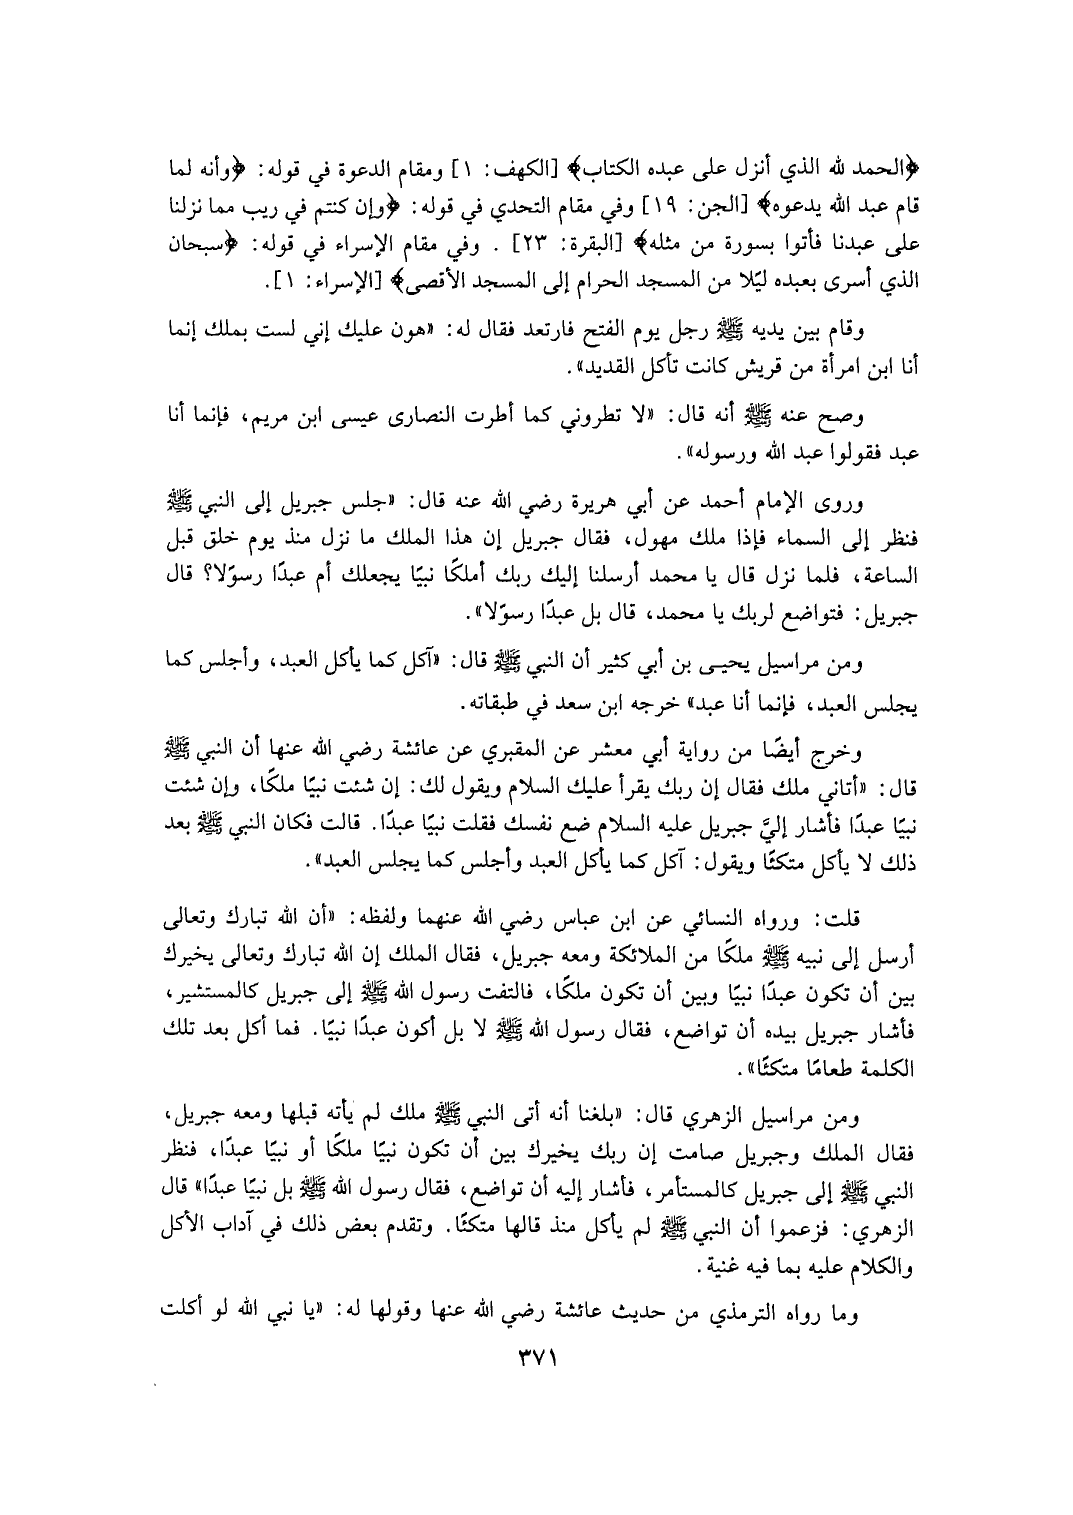 ﴿الحمد لله الذي أنزل على عبده الكتاب﴾ [الكهف: ١] ومقام الدعوة في قوله: ﴿وأنه لما
قام عبد الله يدعوه﴾ [الجن: ١٩] وفي مقام التحدي في قوله: ﴿وإن كنتم في ريب مما نزلنا
على عبدنا فأتوا بسورة من مثله﴾ [البقرة: ٢٣] . وفي مقام الإسراء في قوله: ﴿سبحان
الذي أسرى بعبده ليًلا من المسجد الحرام إلى المسجد الأقصى﴾ [الإسراء: ١].
وقام بين يديه ﷺ رجل يوم الفتح فارتعد فقال له: «هون عليك إني لست بملك إنما
أنا ابن امرأة من قريش كانت تأكل القديد».
وصح عنه ﷺ أنه قال: «لا تطروني كما أطرت النصارى عيسى ابن مريم، فإنما أنا
عبد فقولوا عبد الله ورسوله».
وروى الإمام أحمد عن أبي هريرة رضي الله عنه قال: «جلس جبريل إلى النبي ﷺ
فنظر إلى السماء فإذا ملك مهول، فقال جبريل إن هذا الملك ما نزل منذ يوم خلق قبل
الساعة، فلما نزل قال يا محمد أرسلنا إليك ربك أملكًا نبيًا يجعلك أم عبدًا رسوًلا؟ قال
جبريل: فتواضع لربك يا محمد، قال بل عبدًا رسوًلا».
ومن مراسيل يحيى بن أبي كثير أن النبي ﷺ قال: «آكل كما يأكل العبد، وأجلس كما
يجلس العبد، فإنما أنا عبد» خرجه ابن سعد في طبقاته.
وخرج أيضًا من رواية أبي معشر عن المقبري عن عائشة رضي الله عنها أن النبي ﷺ
قال: «أتاني ملك فقال إن ربك يقرأ عليك السلام ويقول لك: إن شئت نبيًا ملكًا، وإن شئت
نبيًا عبدًا فأشار إليَّ جبريل عليه السلام ضع نفسك فقلت نبيًا عبدًا. قالت فكان النبي ﷺ بعد
ذلك لا يأكل متكئًا ويقول: آكل كما يأكل العبد وأجلس كما يجلس العبد».
قلت: ورواه النسائي عن ابن عباس رضي الله عنهما ولفظه: «أن الله تبارك وتعالى
أرسل إلى نبيه ﷺ ملكًا من الملائكة ومعه جبريل، فقال الملك إن الله تبارك وتعالى يخيرك
بين أن تكون عبدًا نبيًا وبين أن تكون ملكًا، فالتفت رسول الله ﷺ إلى جبريل كالمستشير،
فأشار جبريل بيده أن تواضع، فقال رسول الله ﷺ لا بل أكون عبدًا نبيًا. فما أكل بعد تلك
الكلمة طعامًا متكئًا».
ومن مراسيل الزهري قال: «بلغنا أنه أتى النبي ﷺ ملك لم يأته قبلها ومعه جبريل،
فقال الملك وجبريل صامت إن ربك يخيرك بين أن تكون نبيًا ملكًا أو نبيًا عبدًا، فنظر
النبي ﷺ إلى جبريل كالمستأمر، فأشار إليه أن تواضع، فقال رسول الله ﷺ بل نبيًا عبدًا» قال
الزهري: فزعموا أن النبي ﷺ لم يأكل منذ قالها متكئًا. وتقدم بعض ذلك في آداب الأكل
والكلام عليه بما فيه غنية.
وما رواه الترمذي من حديث عائشة رضي الله عنها وقولها له: «يا نبي الله لو أكلت
٣٧١